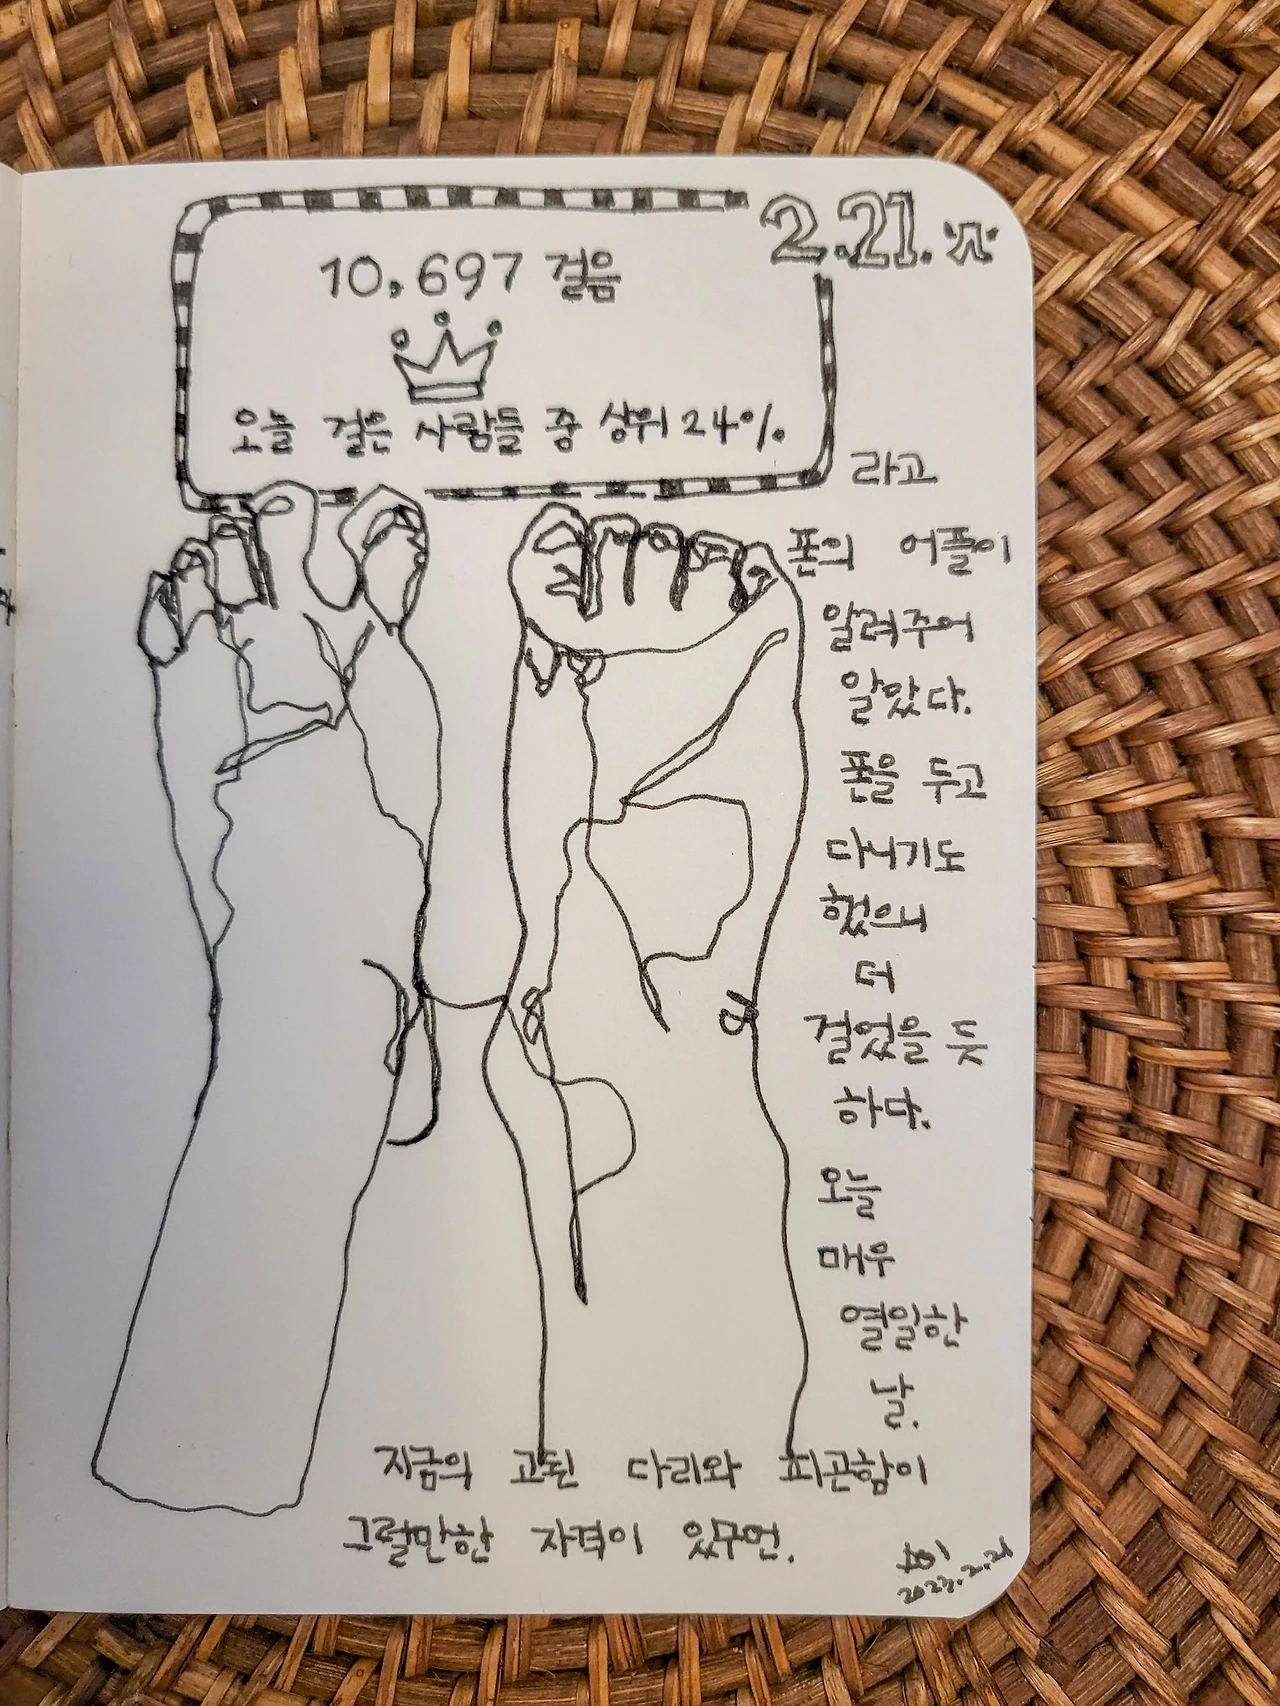 2.21.
10,697 걸음
오늘 걸은 사람들 중 상위 24%.
라고
폰의 어플이
알려주어
알았다.
폰을 두고
다니기도
했으니
더
걸었을 듯
하다.
오늘
매우
열일한
날.
지금의 고된 다리와 피곤함이
그럴만한 자격이 있구먼.
2023.2.21